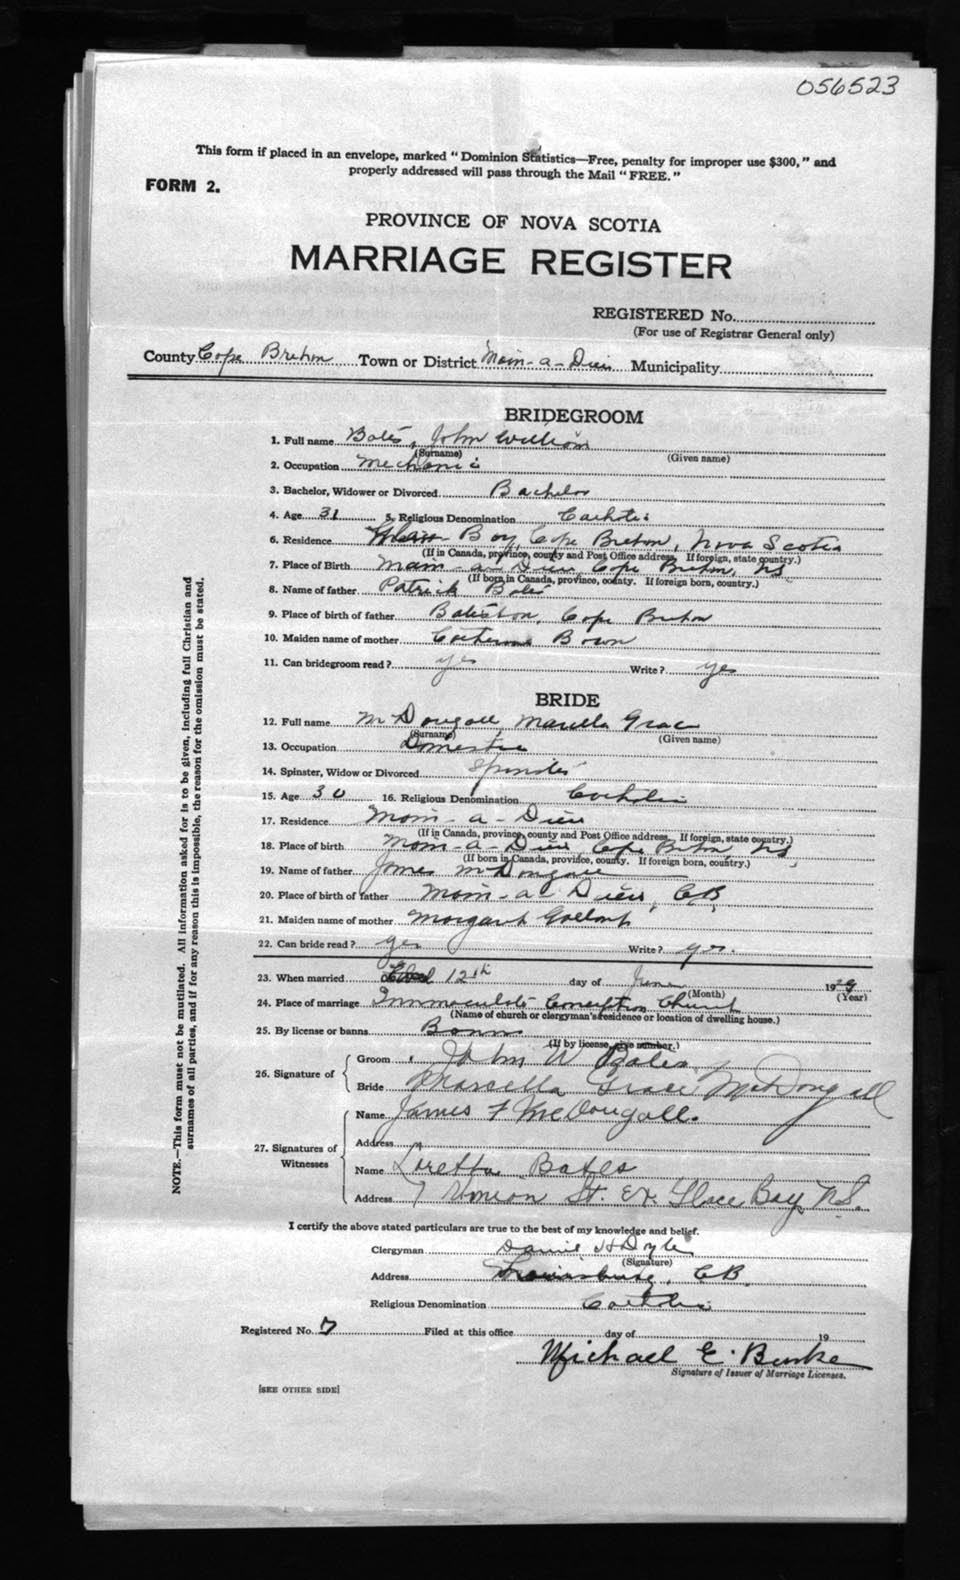 056523
This form if placed in an envelope, marked "Dominion Statistics—Free, penalty for improper use $300," and
properly addressed will pass through the Mail "FREE."
FORM 2.
PROVINCE OF NOVA SCOTIA
MARRIAGE REGISTER
REGISTERED No.
(For use of Registrar General only)
County Cape Breton Town or District Main-a-Dieu Municipality
BRIDEGROOM
1. Full name Bates, John William
(Surname) (Given name)
2. Occupation Mechanic
3. Bachelor, Widower or Divorced Bachelor
4. Age 31 5. Religious Denomination Catholic
6. Residence Glace Bay, Cape Breton, Nova Scotia
(If in Canada, province, county and Post Office address. If foreign, state country.)
7. Place of Birth Main-a-Dieu, Cape Breton, NS
(If born in Canada, province, county. If foreign born, country.)
8. Name of father Patrick Bates
9. Place of birth of father Bateston, Cape Breton
10. Maiden name of mother Catherine Bown
11. Can bridegroom read? yes Write? yes
BRIDE
12. Full name McDougall, Marcella Grace
(Surname) (Given name)
13. Occupation Domestic
14. Spinster, Widow or Divorced Spinster
15. Age 30 16. Religious Denomination Catholic
17. Residence Main-a-Dieu
(If in Canada, province, county and Post Office address. If foreign, state country.)
18. Place of birth Main-a-Dieu, Cape Breton, NS
(If born in Canada, province, county. If foreign born, country.)
19. Name of father James McDougall
20. Place of birth of father Main-a-Dieu, CB
21. Maiden name of mother Margaret Gallant
22. Can bride read? yes Write? yes.
23. When married 12th day of June 1929
(Month) (Year)
24. Place of marriage Immaculate Conception Church
(Name of church or clergyman's residence or location of dwelling house.)
25. By license or banns Banns
(If by license, give number.)
26. Signature of
Groom John W Bates
Bride Marcella Grace McDougall
27. Signatures of Witnesses
Name James F McDougall.
Address
Name Loretta Bates
Address 7 Union St. Ex. Glace Bay N.S.
I certify the above stated particulars are true to the best of my knowledge and belief.
Clergyman Daniel H Doyle
(Signature)
Address Louisburg, CB.
Religious Denomination Catholic
Registered No. 7 Filed at this office day of 19
Michael E. Burke
Signature of Issuer of Marriage Licenses.
[SEE OTHER SIDE]
NOTE.—This form must not be mutilated. All information asked for is to be given, including full Christian and
surnames of all parties, and if for any reason this is impossible, the reason for the omission must be stated.